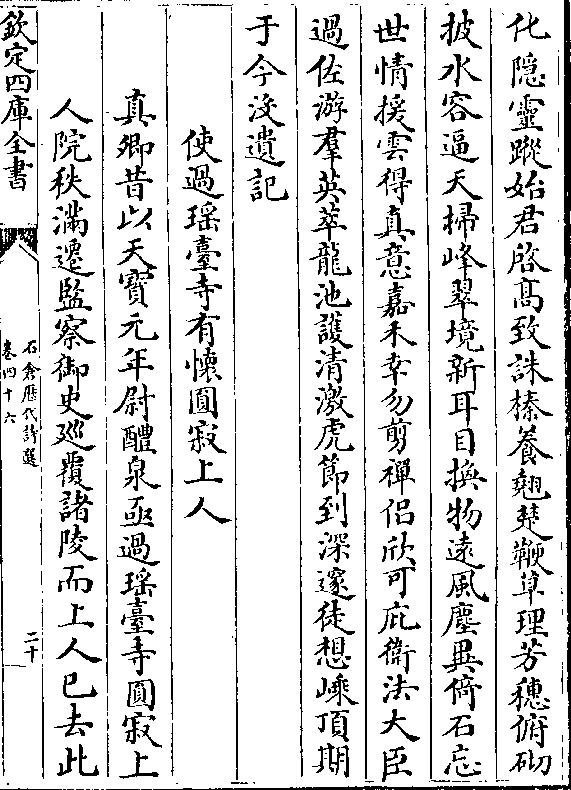 化隠靈蹤始君啓髙致誅榛養翹楚鞭草理芳穗俯砌
披水容逼天掃峰翠境新耳目換物遠風塵異倚石忘
世情援雲得真意嘉木幸勿剪禪侶欣可庇衛法大臣
過佐游羣英萃龍池護清澈虎節到深邃徒想嵊頂期
于今沒遺記
使過瑶臺寺有懷圓寂上人
真卿昔以天寳元年尉醴泉亟過瑶臺寺圓寂上
人院秩滿遷監察御史廵覆諸陵而上人已去此
欽定四庫全書
石倉歴代詩選
卷四十六
二十